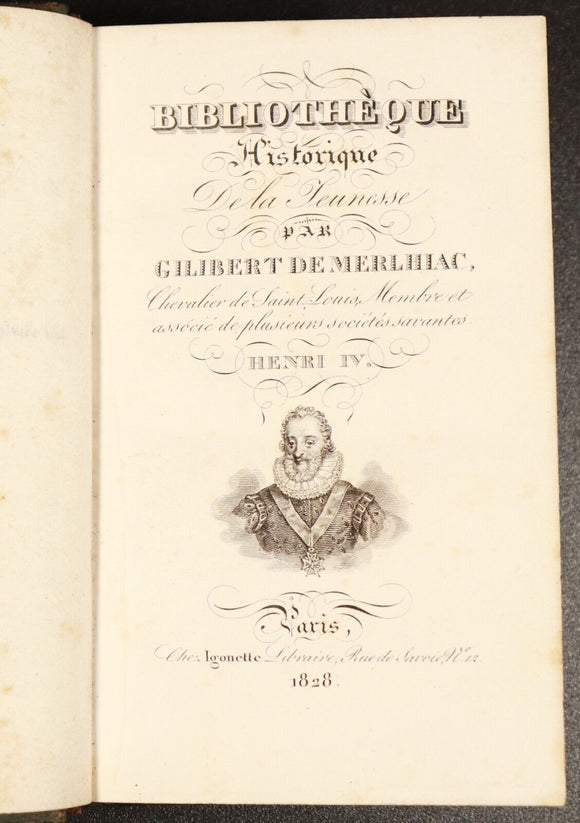 BIBLIOTHÈQUE
Historique
De la Jeunesse
PAR
GILIBERT DE MERLHIAC,
Chevalier de Saint Louis, Membre et
associé de plusieurs sociétés savantes
HENRI IV.
Paris,
Chez Igonette Libraire, Rue de Savoie, No. 12
1828.